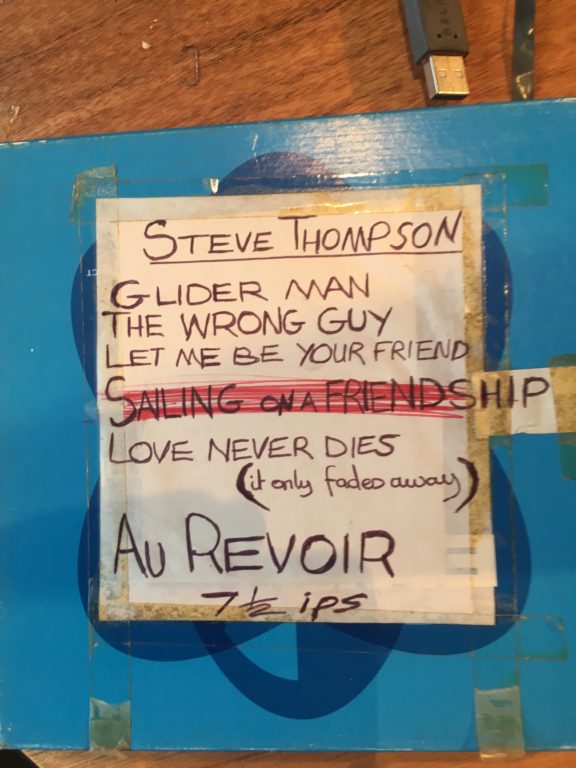 STEVE THOMPSON
GLIDER MAN
THE WRONG GUY
LET ME BE YOUR FRIEND
SAILING ON A FRIENDSHIP
LOVE NEVER DIES
(it only fades away)
AU REVOIR
7 1/2 ips